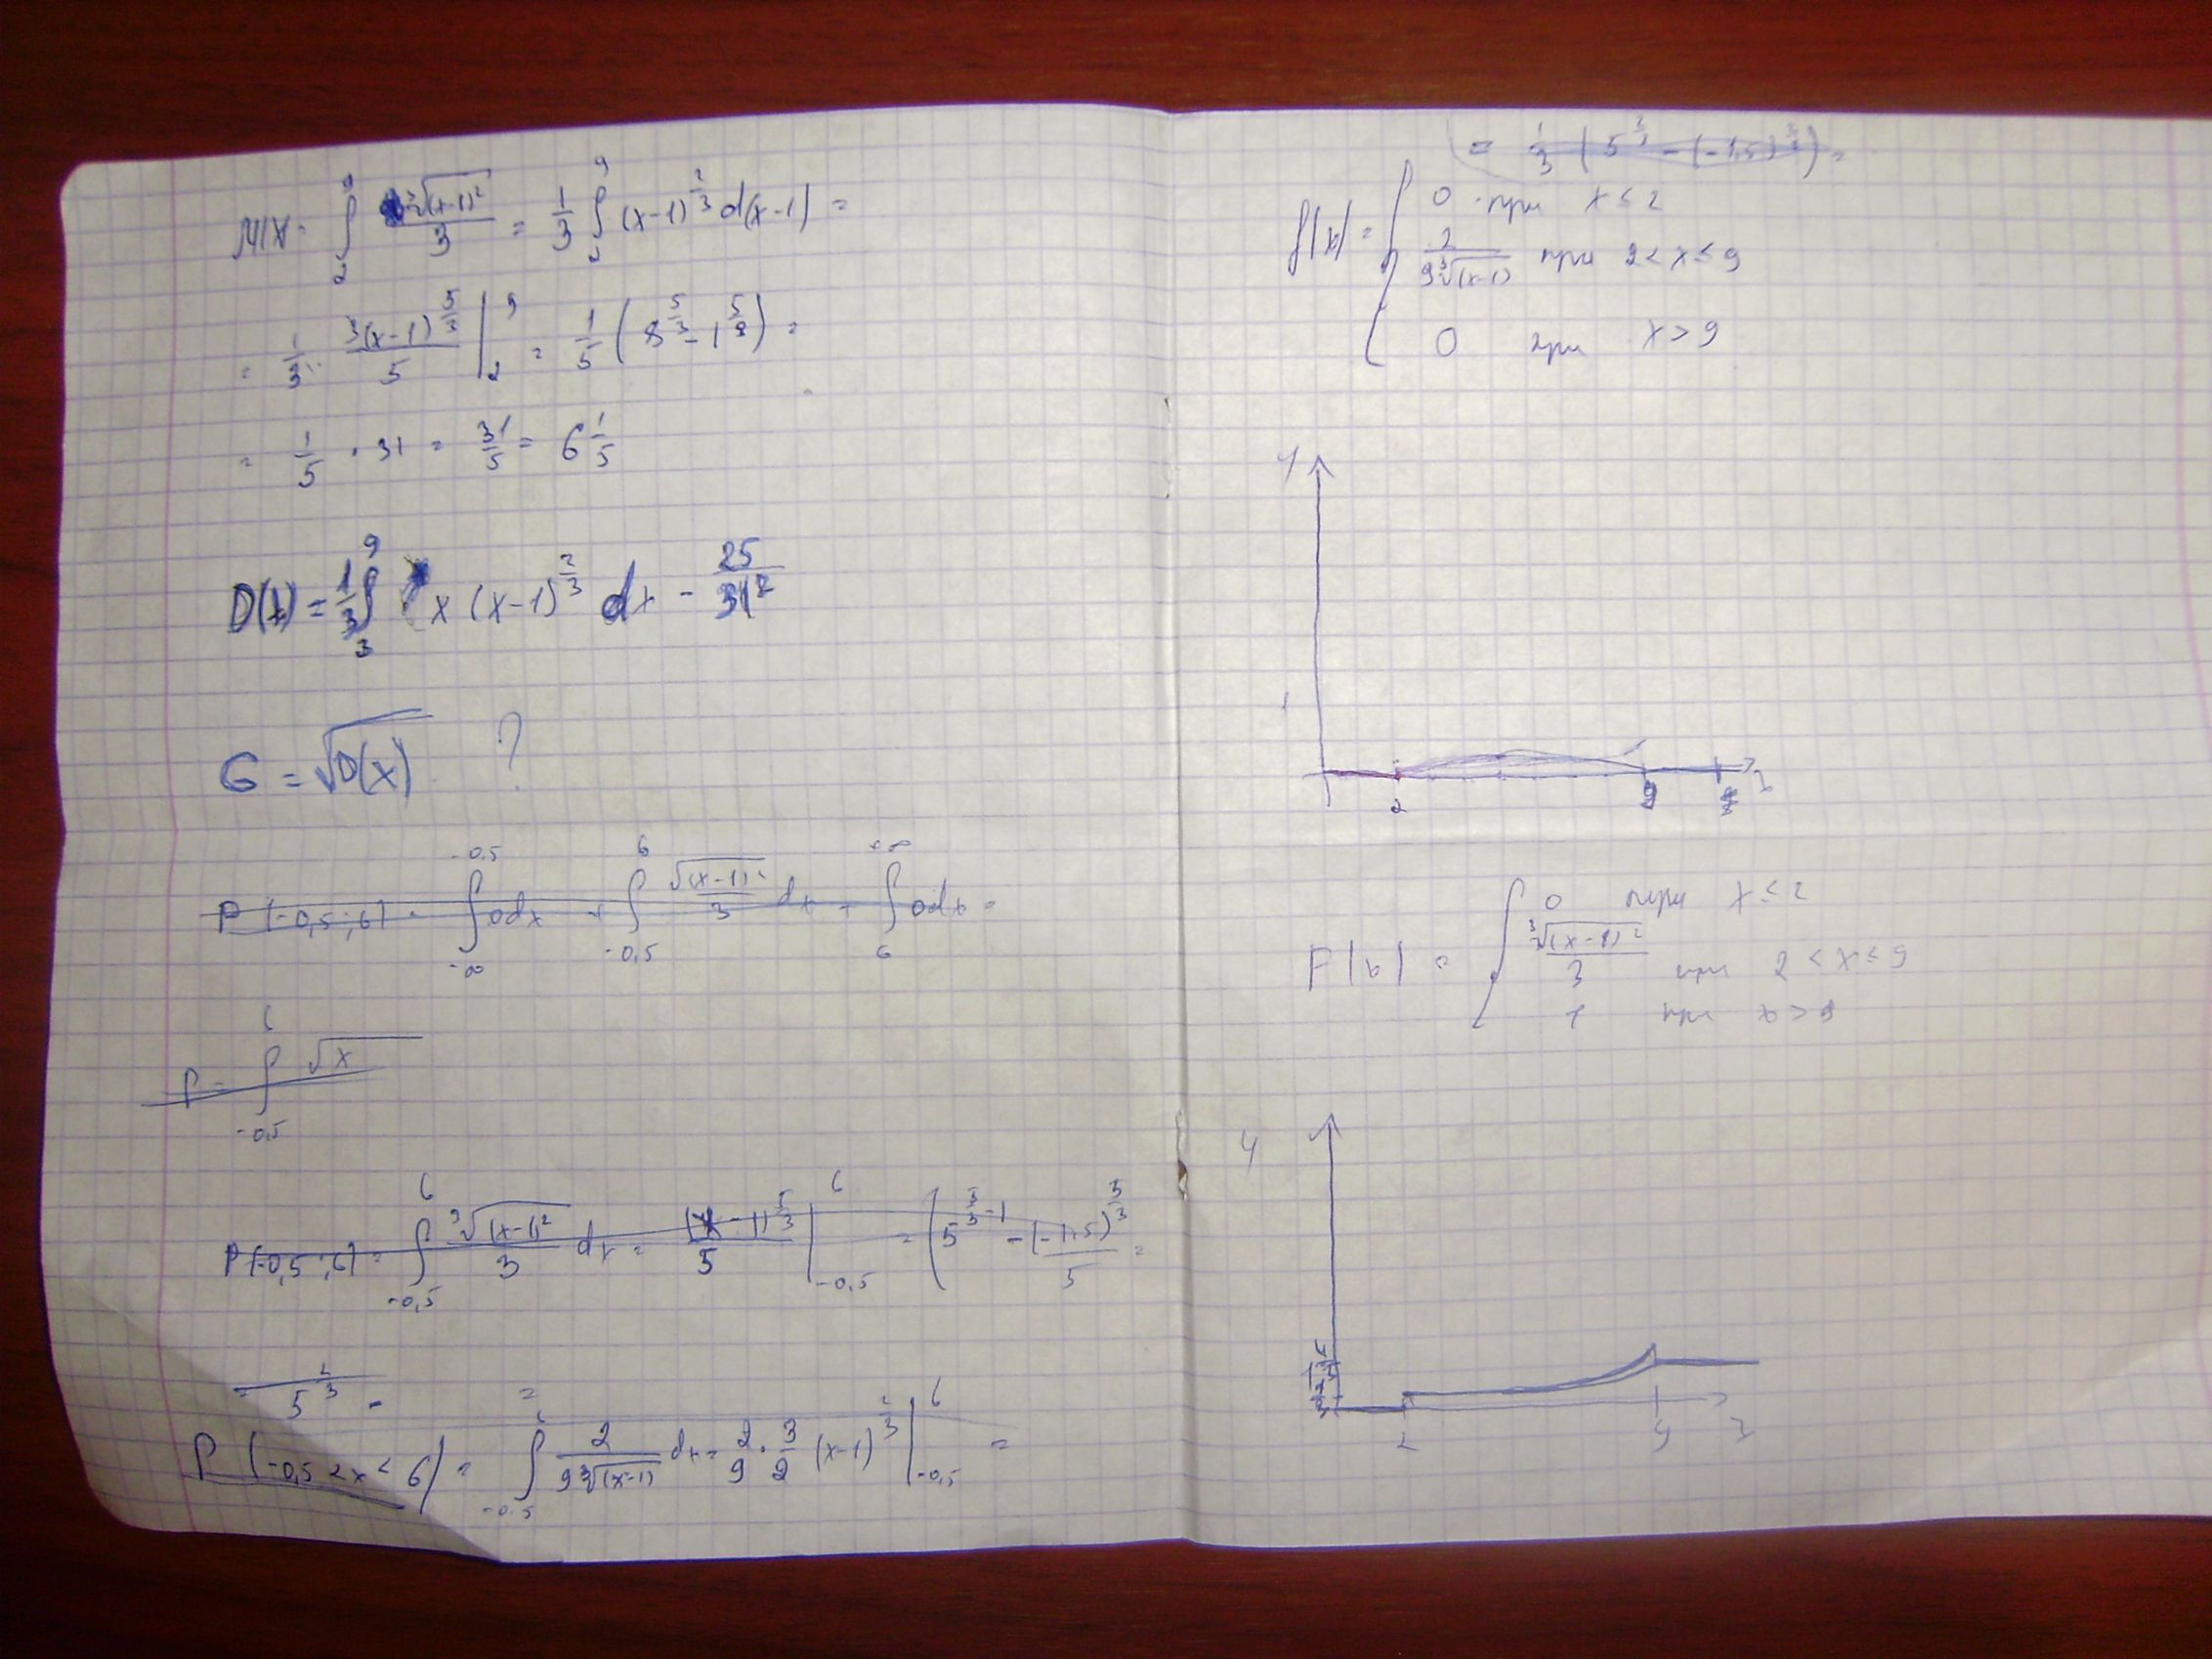 M(X) = ∫₂⁹ ∛(x-1)²/3 = 1/3 ∫₂⁹ (x-1)^(2/3) d(x-1) =
= 1/3 · 3(x-1)^(5/3)/5 |₂⁹ = 1/5 (8^(5/3) - 1^(5/3)) =
= 1/5 · 31 = 31/5 = 6 1/5
D(x) = 1/3 ∫₃⁹ x (x-1)^(2/3) dx - 25/31²
G = √D(x) ?
P (-0,5; 6) = ∫_(-∞)^(-0.5) 0dx + ∫_(-0,5)^6 √(x-1)²/3 dx + ∫_6^(+∞) 0dx =
P = ∫_(-0,5)^6 √x
P(-0,5; 6) = ∫_(-0,5)^6 ∛(x-1)²/3 dx = (x-1)^(5/3)/5 |_(-0,5)^6 = (5^(5/3) - 1 - (-1,5)^(5/3)/5 =
= 5^(2/3) - =
P (-0,5 < x < 6) = ∫_(-0.5)^6 2/(9∛(x-1)) dx = 2/9 · 3/2 (x-1)^(2/3) |_(-0,5)^6 =
= 1/3 (5 - (-1,5)) =
f(x) = { 0 при x ≤ 2
2/(9∛(x-1)) при 2 < x ≤ 9
0 при x > 9
y
1
2 9
F(x) = { 0 при x ≤ 2
∛(x-1)²/3 при 2 < x ≤ 9
1 при x > 9
y
2 9